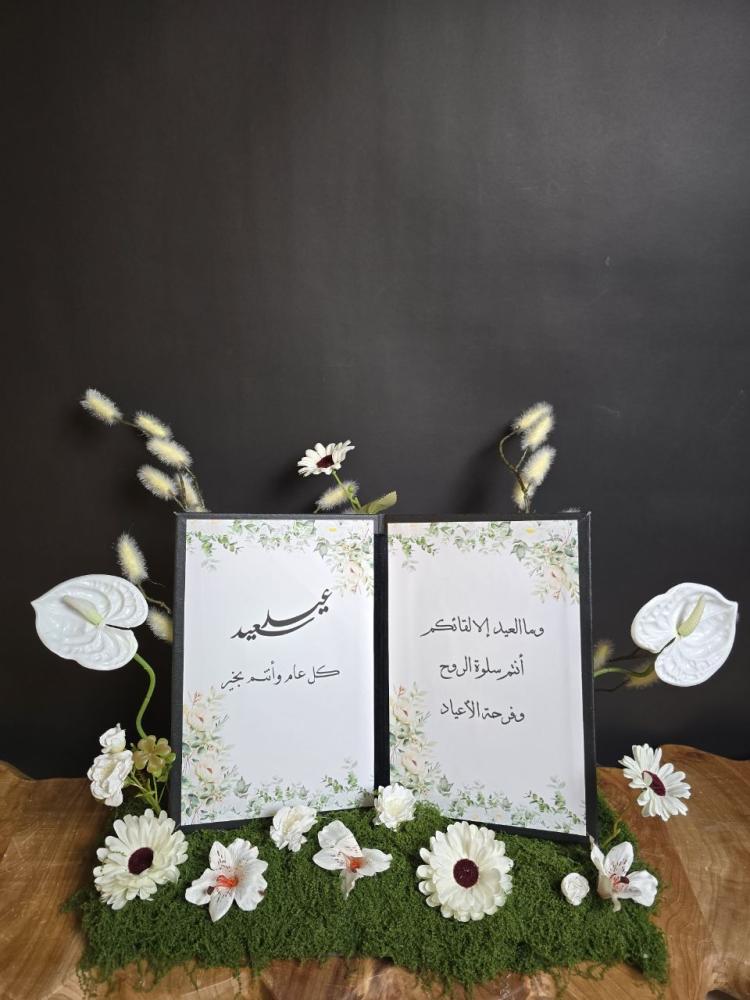 عيد سعيد
كل عام وأنتم بخير
وما العيد إلا لقائكم
أنتم سلوة الروح
وفرحة الأعياد